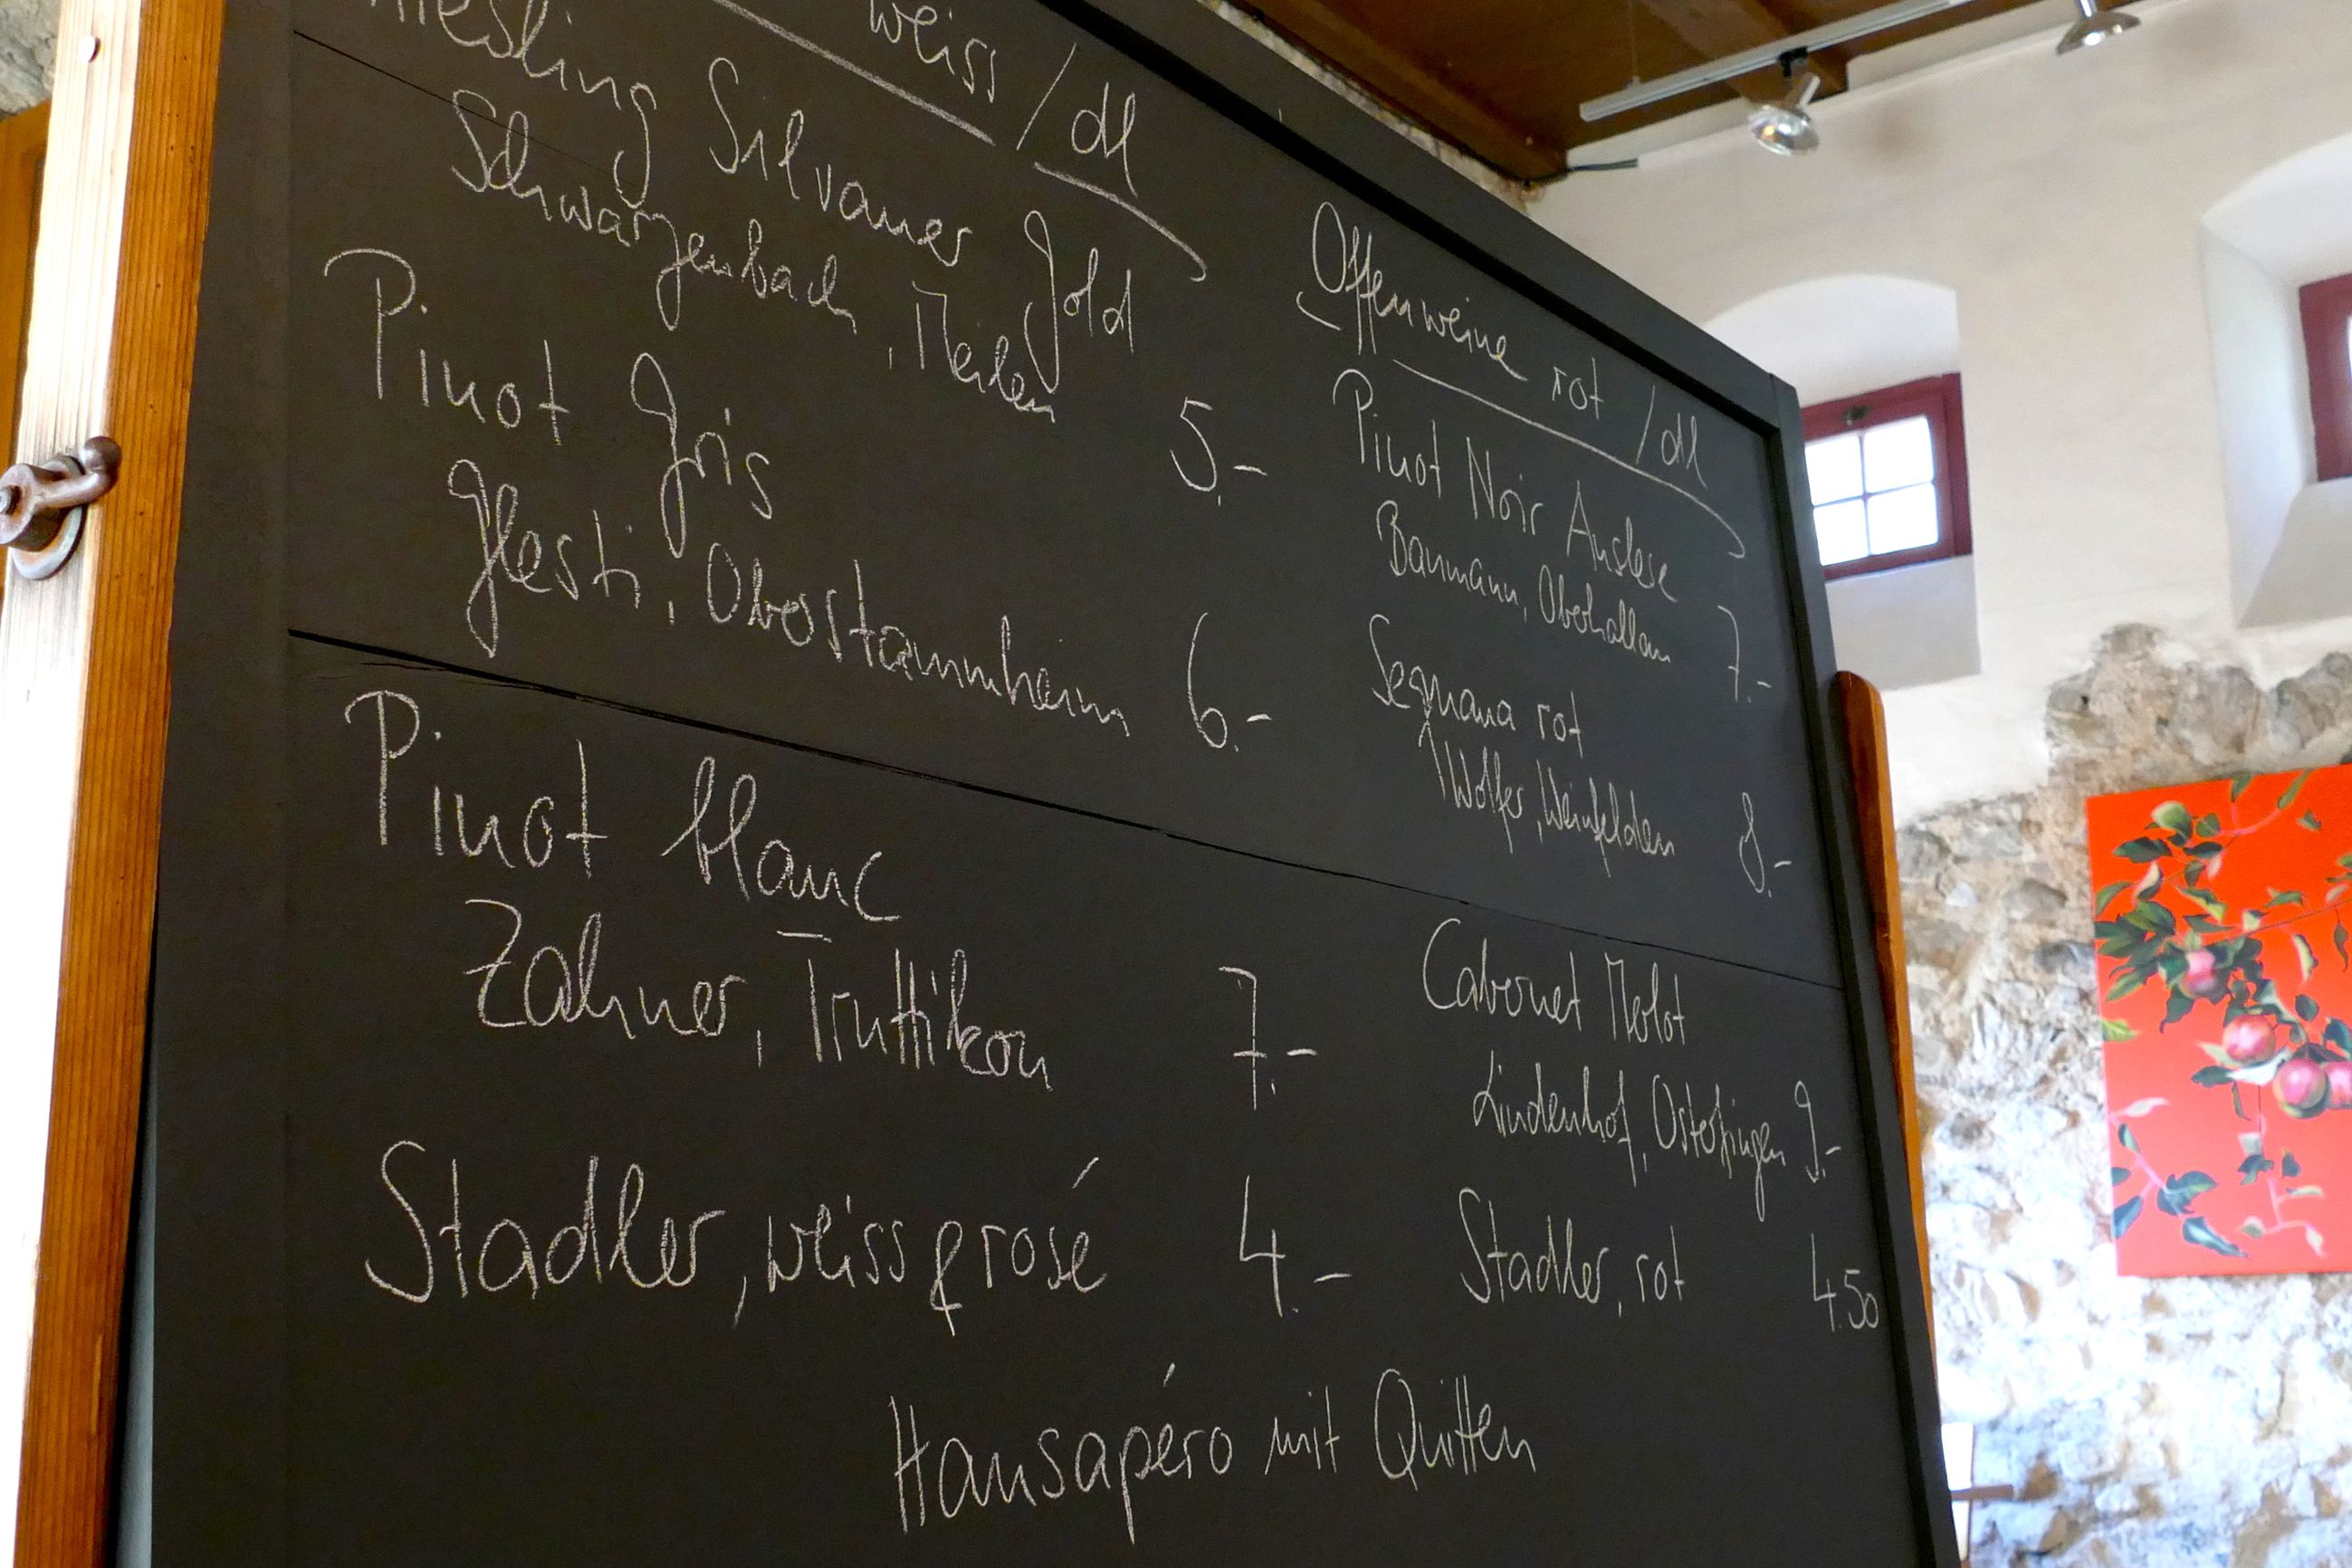 weiss /dl
Riesling Silvaner Gold
Schwarzenbach, Meilen 5.-
Pinot Gris
Glesti, Oberstammheim 6.-
Pinot blanc
Zahner, Truttikon 7.-
Stadler, weiss & rosé 4.-
Offenweine rot /dl
Pinot Noir Auslese
Baumann, Oberhallau 7.-
Sequana rot
Wolfer, Weinfelden 8.-
Cabernet Merlot
Lindenhof, Osterfingen 9.-
Stadler, rot 4.50
Hausapéro mit Quitten